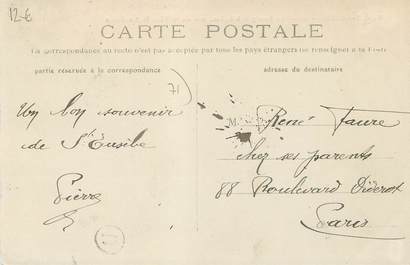 12-€
CARTE POSTALE
La correspondance au recto n'est pas acceptée par tous les pays étrangers (se renseigner à la Poste)
partie réservée à la correspondance
adresse du destinataire
71
Un bon souvenir
de St Eusèbe
Pierre
M. René Faure
chez ses parents
88 Boulevard Diderot
Paris